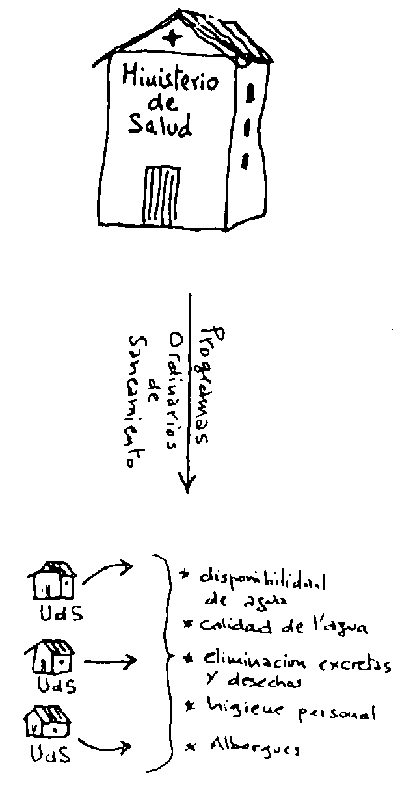 Ministerio
de
Salud
Programas
Ordinarios
de
Saneamiento
UdS
UdS
UdS
* disponibilidad
de agua
* calidad de l'agua
* eliminacion excretas
y desechos
* higiene personal
* Albergues